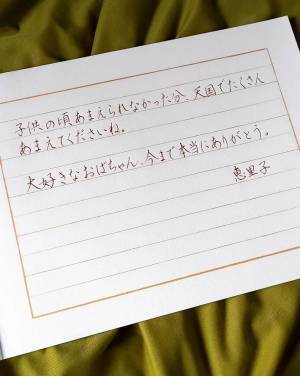 子供の頃あまえられなかった分、天国でたくさん
あまえてくださいね。
大好きなおばちゃん、今まで本当にありがとう。
恵里子